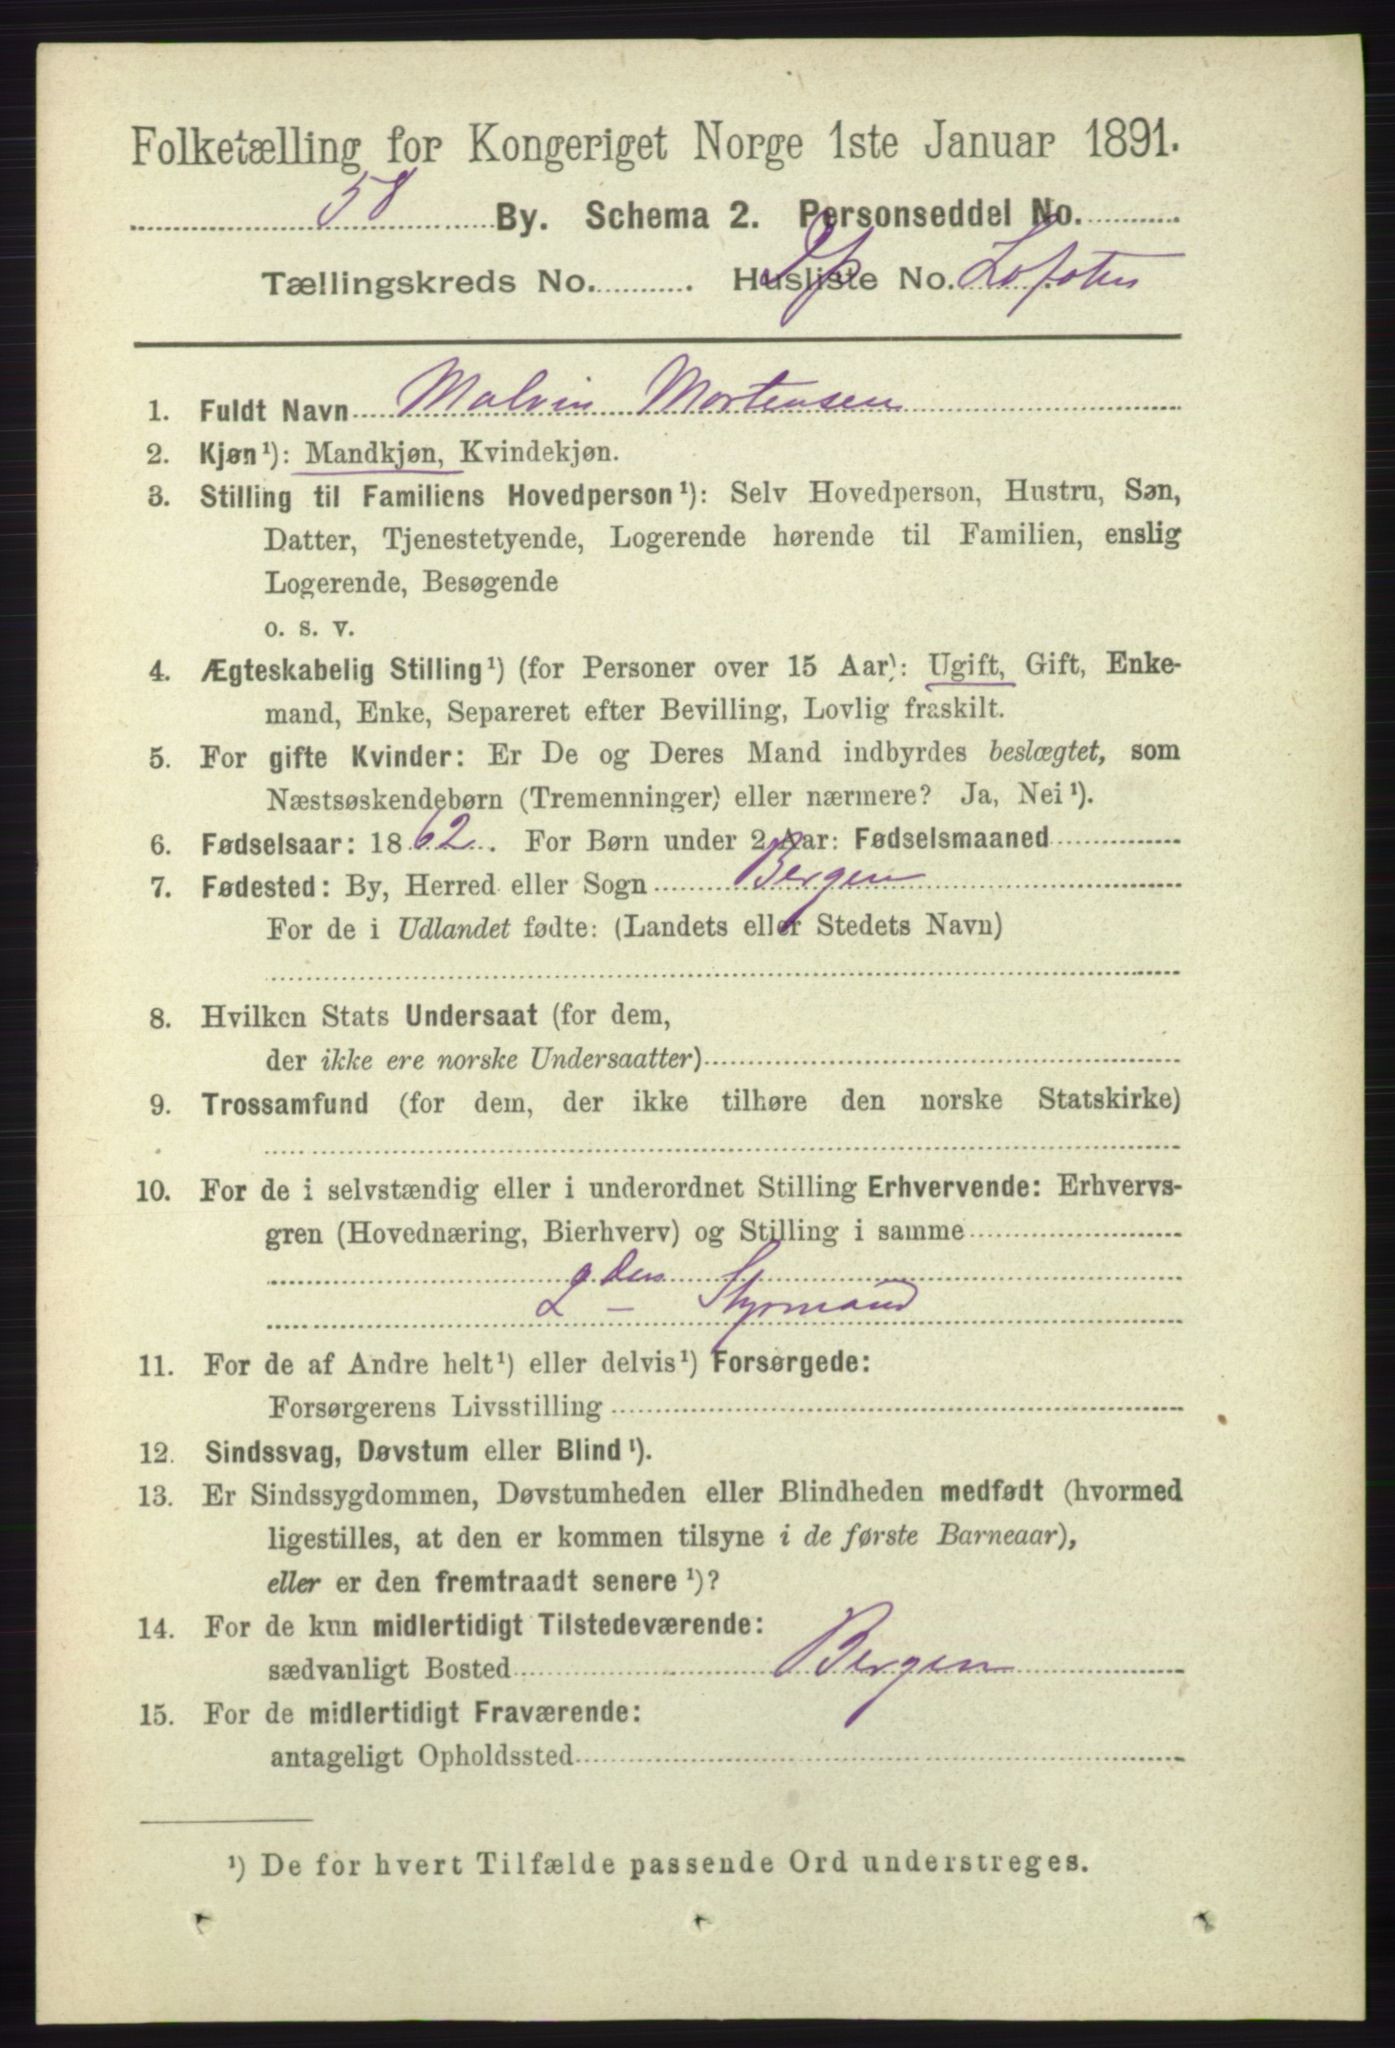 Folketælling for Kongeriget Norge 1ste Januar 1891.
58 By. Schema 2. Personseddel No.
Tællingskreds No. Husliste No. Lofoten
1. Fuldt Navn Malvin Mortensen
2. Kjøn¹): Mandkjøn, Kvindekjøn.
3. Stilling til Familiens Hovedperson¹): Selv Hovedperson, Hustru, Søn,
Datter, Tjenestetyende, Logerende hørende til Familien, enslig
Logerende, Besøgende
o. s. v.
4. Ægteskabelig Stilling¹) (for Personer over 15 Aar): Ugift, Gift, Enke-
mand, Enke, Separeret efter Bevilling, Lovlig fraskilt.
5. For gifte Kvinder: Er De og Deres Mand indbyrdes beslægtet, som
Næstsøskendebørn (Tremenninger) eller nærmere? Ja, Nei¹).
6. Fødselsaar: 1862. For Børn under 2 Aar: Fødselsmaaned
7. Fødested: By, Herred eller Sogn Bergen
For de i Udlandet fødte: (Landets eller Stedets Navn)
8. Hvilken Stats Undersaat (for dem,
der ikke ere norske Undersaatter)
9. Trossamfund (for dem, der ikke tilhøre den norske Statskirke)
10. For de i selvstændig eller i underordnet Stilling Erhvervende: Erhvervs-
gren (Hovednæring, Bierhverv) og Stilling i samme
2den Styrmand
11. For de af Andre helt¹) eller delvis¹) Forsørgede:
Forsørgerens Livsstilling
12. Sindssvag, Døvstum eller Blind¹).
13. Er Sindssygdommen, Døvstumheden eller Blindheden medfødt (hvormed
ligestilles, at den er kommen tilsyne i de første Barneaar),
eller er den fremtraadt senere¹)?
14. For de kun midlertidigt Tilstedeværende:
sædvanligt Bosted Bergen
15. For de midlertidigt Fraværende:
antageligt Opholdssted
¹) De for hvert Tilfælde passende Ord understreges.